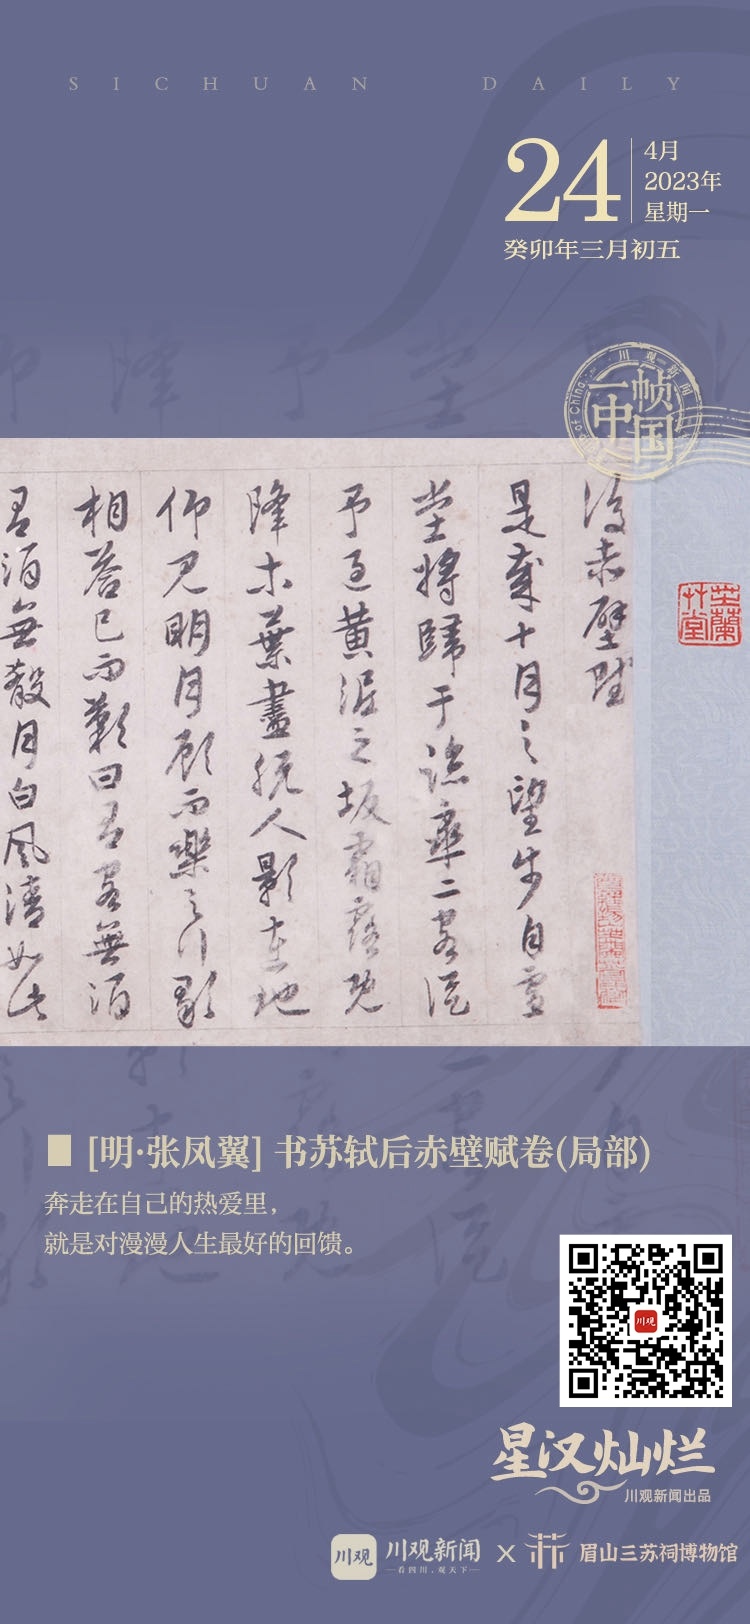 SICHUAN DAILY
24
4月
2023年
星期一
癸卯年三月初五
川观新闻
一帧
中国
of China
後赤壁賦
是歲十月之望步自雪
堂將歸于臨皋二客從
予過黃泥之坂霜露既
降木葉盡脫人影在地
仰見明月顧而樂之行歌
相答已而歎曰有客無酒
有酒無殽月白風清如此
[明·张凤翼] 书苏轼后赤壁赋卷(局部)
奔走在自己的热爱里，
就是对漫漫人生最好的回馈。
川观
星汉灿烂
川观新闻出品
川观
川观新闻
看四川，观天下
X
眉山三苏祠博物馆